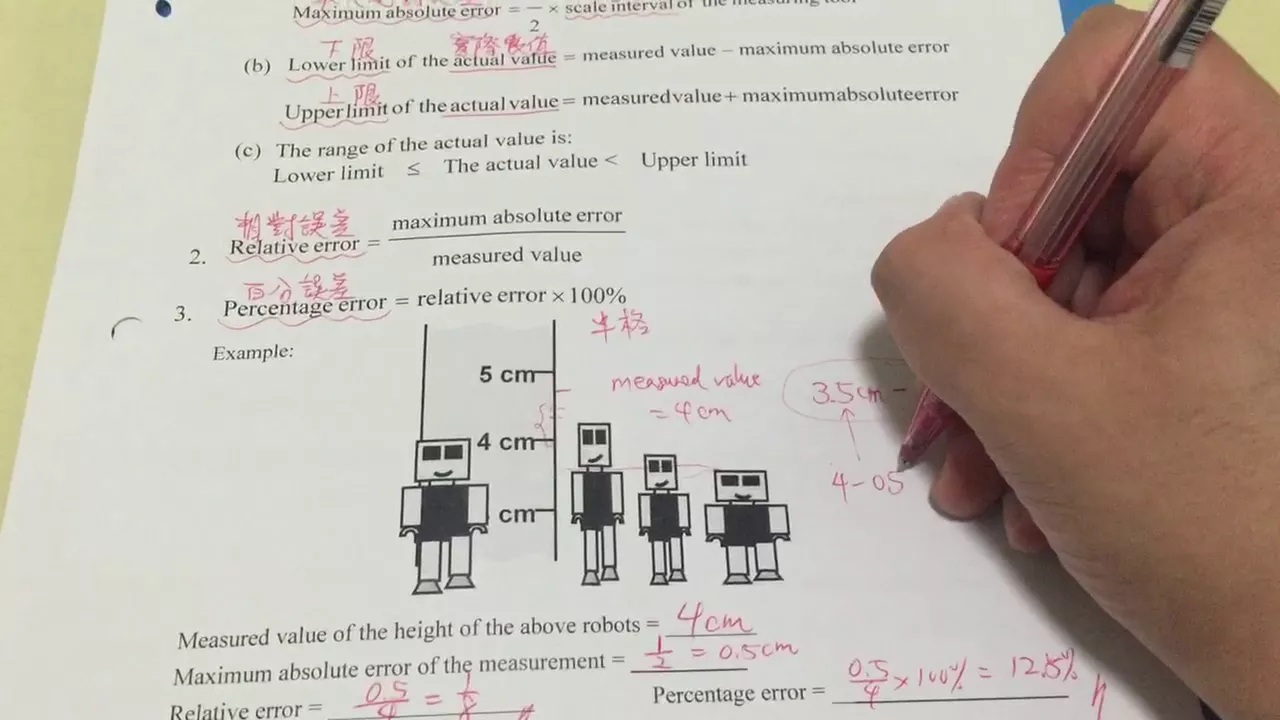 Maximum absolute error = — × scale interval of the measuring tool
2
下限 實際數值
(b) Lower limit of the actual value = measured value − maximum absolute error
上限
Upper limit of the actual value = measured value + maximum absolute error
(c) The range of the actual value is:
Lower limit ≤ The actual value < Upper limit
相對誤差
2. Relative error = maximum absolute error
measured value
百分誤差
3. Percentage error = relative error × 100%
半格
Example:
5 cm
measured value
= 4 cm
3.5cm −
4 cm
4 − 05
cm
Measured value of the height of the above robots = 4cm
Maximum absolute error of the measurement = 1/2 = 0.5cm
Relative error = 0.5/4 = 1/8
Percentage error = 0.5/4 × 100% = 12.5%